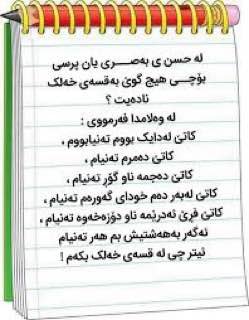 لە حسن ی بەصـــری یان پرسی
بۆچــی هیچ گوێ بەقسەی خەلک
نادەیت ؟
لە وەلامدا فەرمووی :
کاتێ لەدایک بووم تەنیابووم ,
کاتێ دەمرم تەنیام ,
کاتێ دەچمە ناو گۆر تەنیام ,
کاتێ لەبەر دەم خودای گەورەم تەنیام ,
کاتێ فرێ ئەدرێمە ناو دۆزەخەوە تەنیام ,
ئەگەر بەهەشتیش بم هەر تەنیام
ئیتر چی لە قسەی خەلک بکەم !